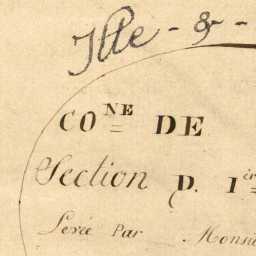 Ille - & -
CO^NE DE
Section D. 1^ère
Levée Par Monsie